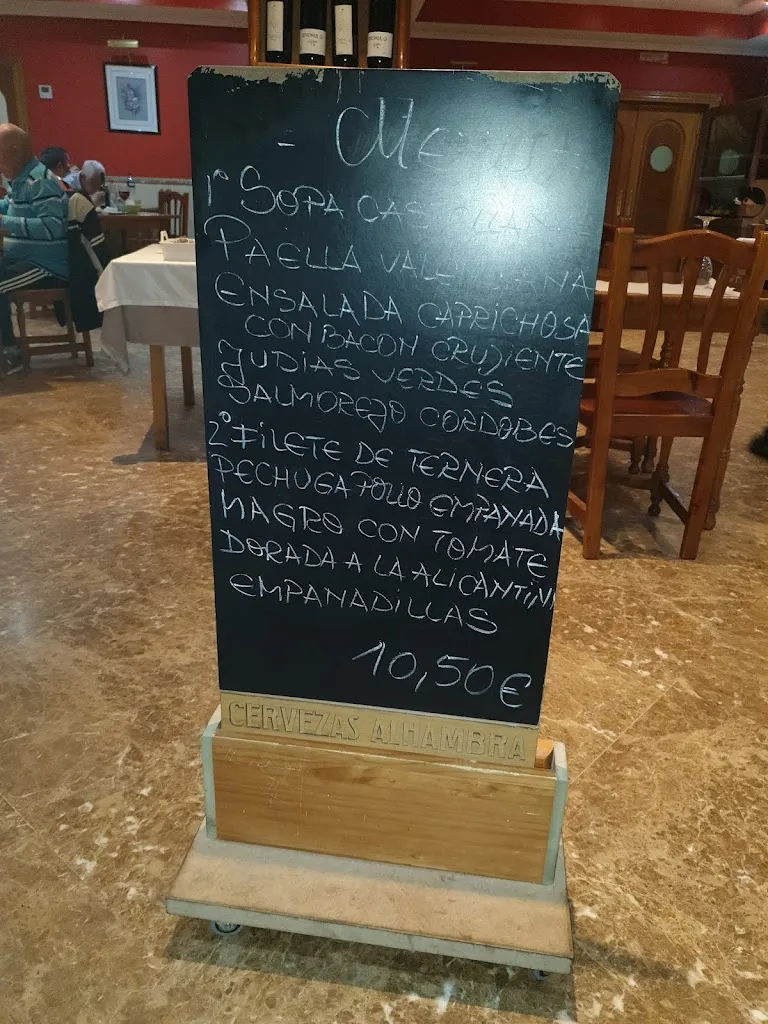 - Menú -
1º SOPA CASTELLANA
PAELLA VALENCIANA
ENSALADA CAPRICHOSA
CON BACON CRUJIENTE
JUDIAS VERDES
SALMOREJO CORDOBES
2º FILETE DE TERNERA
PECHUGA POLLO EMPANADA
MAGRO CON TOMATE
DORADA A LA ALICANTIN
EMPANADILLAS
10,50€
CERVEZAS ALHAMBRA